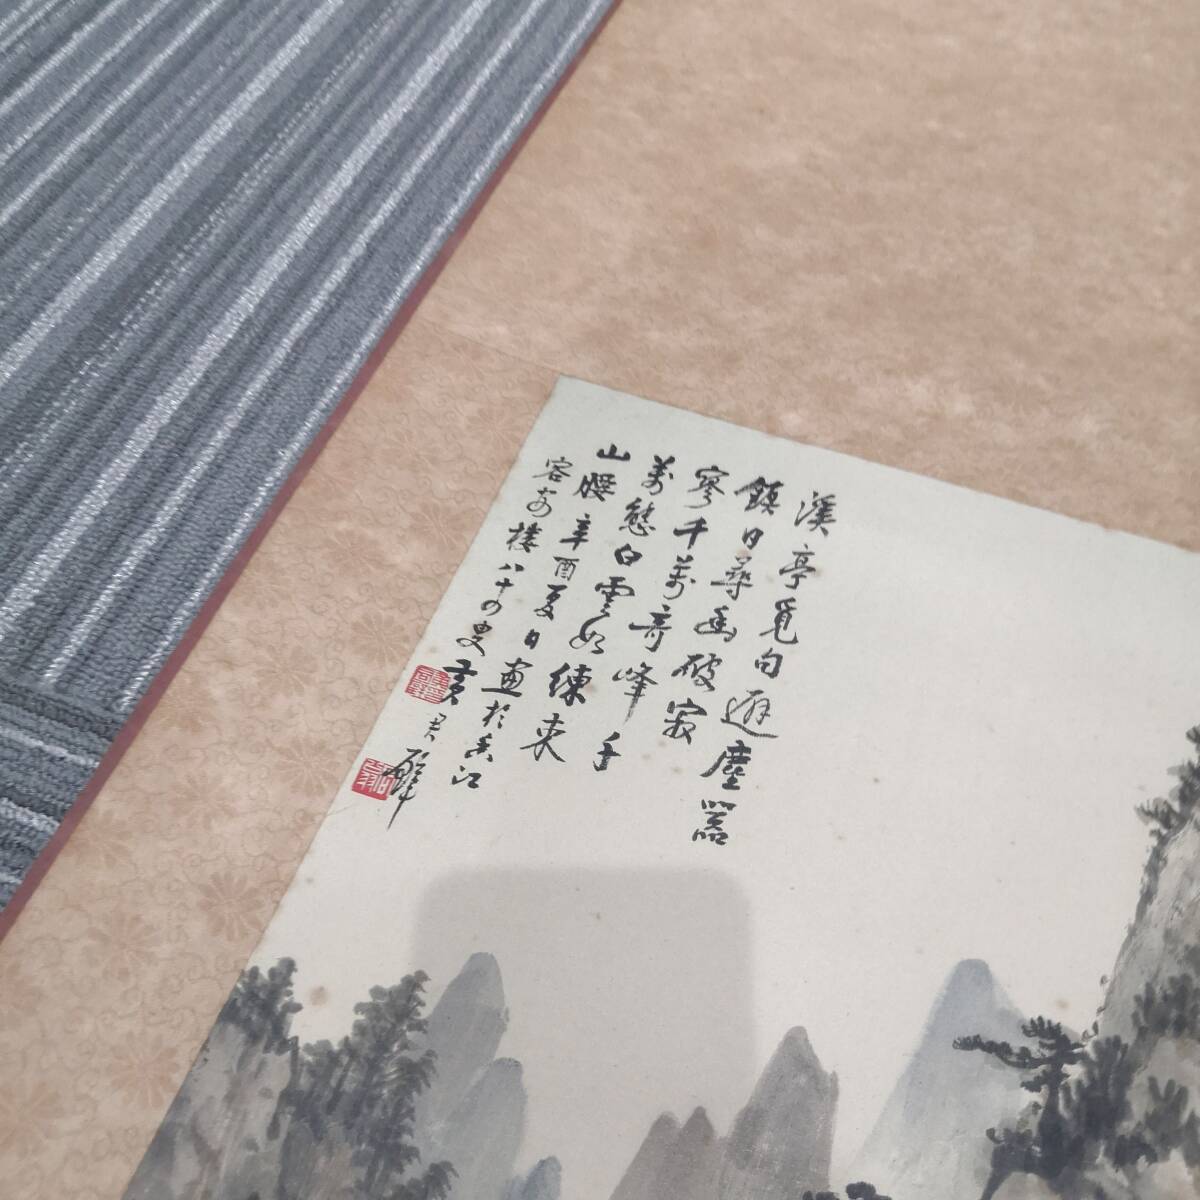 溪亭覓句避塵囂
鎮日尋幽破寂
寥千萬奇峰千
萬態白雲如練束
山腰辛酉夏日畫於香江
容安樓八十四叟黃君璧